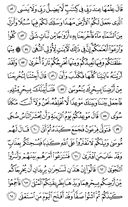 قَالَ عِلْمُهَا عِندَ رَبِّي فِي كِتَٰبٍ لَّا يَضِلُّ رَبِّي وَلَا يَنسَى ٥٢
ٱلَّذِي جَعَلَ لَكُمُ ٱلْأَرْضَ مَهْدًا وَسَلَكَ لَكُمْ فِيهَا سُبُلًا وَأَنزَلَ
مِنَ ٱلسَّمَآءِ مَآءً فَأَخْرَجْنَا بِهِۦٓ أَزْوَٰجًا مِّن نَّبَاتٍ شَتَّىٰ ٥٣ كُلُوا۟
وَٱرْعَوْا۟ أَنْعَٰمَكُمْ إِنَّ فِي ذَٰلِكَ لَءَايَٰتٍ لِّأُو۟لِي ٱلنُّهَىٰ ٥٤ ۞ مِنْهَا
خَلَقْنَٰكُمْ وَفِيهَا نُعِيدُكُمْ وَمِنْهَا نُخْرِجُكُمْ تَارَةً أُخْرَىٰ ٥٥
وَلَقَدْ أَرَيْنَٰهُ ءَايَٰتِنَا كُلَّهَا فَكَذَّبَ وَأَبَىٰ ٥٦ قَالَ أَجِئْتَنَا
لِتُخْرِجَنَا مِنْ أَرْضِنَا بِسِحْرِكَ يَٰمُوسَىٰ ٥٧ فَلَنَأْتِيَنَّكَ بِسِحْرٍ
مِّثْلِهِۦ فَٱجْعَلْ بَيْنَنَا وَبَيْنَكَ مَوْعِدًا لَّا نُخْلِفُهُۥ نَحْنُ وَلَآ أَنتَ
مَكَانًا سُوًى ٥٨ قَالَ مَوْعِدُكُمْ يَوْمُ ٱلزِّينَةِ وَأَن يُحْشَرَ ٱلنَّاسُ
ضُحًى ٥٩ فَتَوَلَّىٰ فِرْعَوْنُ فَجَمَعَ كَيْدَهُۥ ثُمَّ أَتَىٰ ٦٠ قَالَ لَهُم
مُّوسَىٰ وَيْلَكُمْ لَا تَفْتَرُوا۟ عَلَى ٱللَّهِ كَذِبًا فَيُسْحِتَكُم بِعَذَابٍ
وَقَدْ خَابَ مَنِ ٱفْتَرَىٰ ٦١ فَتَنَٰزَعُوٓا۟ أَمْرَهُم بَيْنَهُمْ وَأَسَرُّوا۟
ٱلنَّجْوَىٰ ٦٢ قَالُوٓا۟ إِنْ هَٰذَٰنِ لَسَٰحِرَٰنِ يُرِيدَانِ أَن يُخْرِجَاكُم
مِّنْ أَرْضِكُم بِسِحْرِهِمَا وَيَذْهَبَا بِطَرِيقَتِكُمُ ٱلْمُثْلَىٰ ٦٣
فَأَجْمِعُوا۟ كَيْدَكُمْ ثُمَّ ٱئْتُوا۟ صَفًّا وَقَدْ أَفْلَحَ ٱلْيَوْمَ مَنِ ٱسْتَعْلَىٰ ٦٤